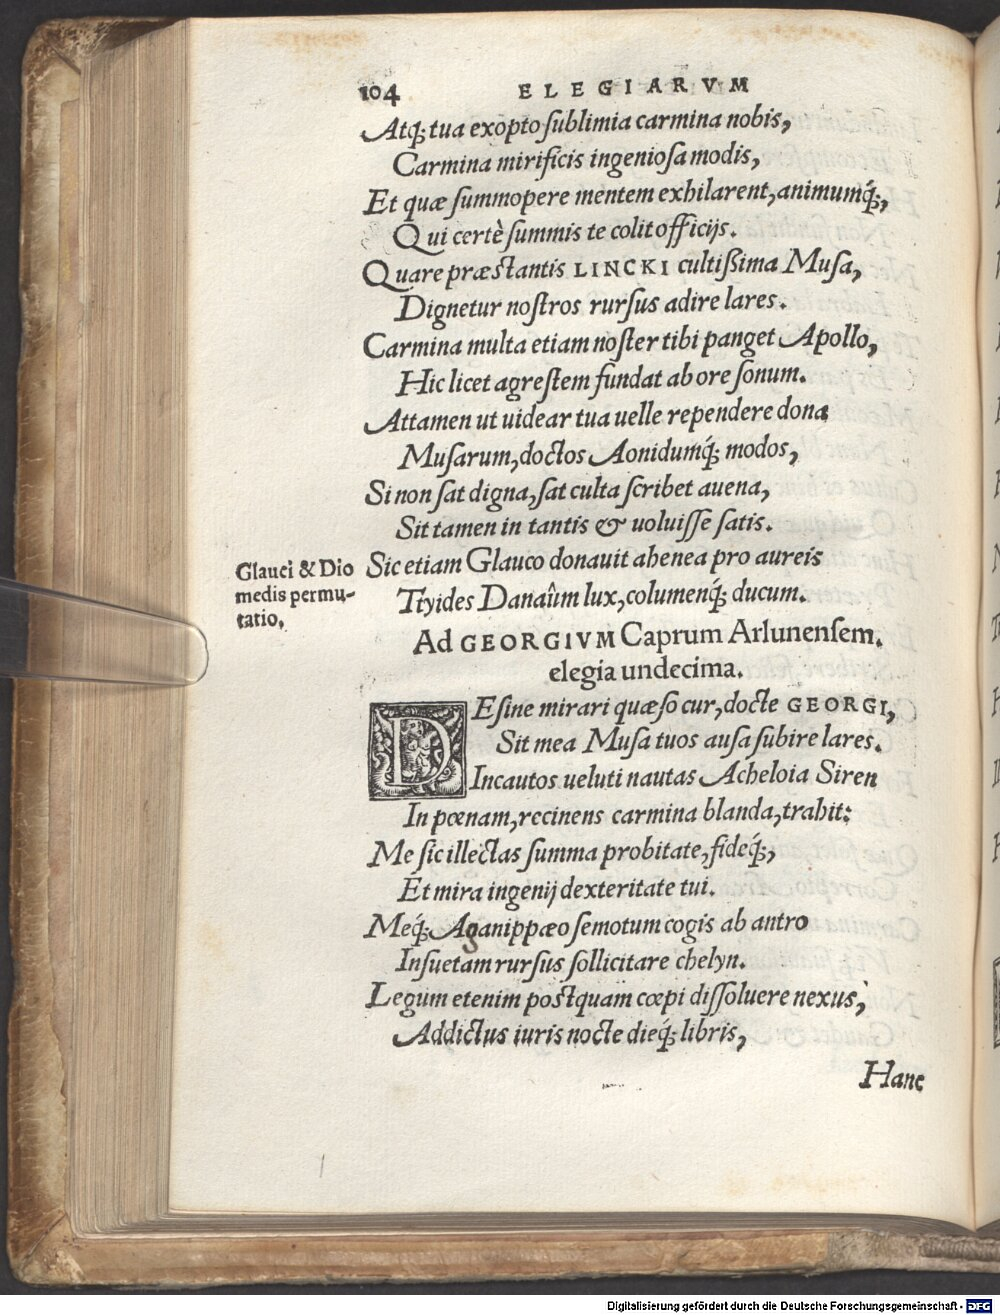 104 ELEGIARVM
Atq́; tua exopto ſublimia carmina nobis,
Carmina mirificis ingenioſa modis,
Et quæ ſummopere mentem exhilarent, animumq́;,
Qui certè ſummis te colit officijs.
Quare præstantis LINCKI cultißima Muſa,
Dignetur noſtros rurſus adire lares.
Carmina multa etiam noſter tibi panget Apollo,
Hic licet agreſtem fundat ab ore ſonum.
Attamen ut uidear tua uelle rependere dona
Muſarum, doctos Aonidumq́; modos,
Si non ſat digna, ſat culta ſcribet auena,
Sit tamen in tantis & uoluiſſe ſatis.
Sic etiam Glauco donauit ahenea pro aureis
Glauci & Dio
medis permu-
tatio.
Ttyides Danaûm lux, columenq́; ducum.
Ad GEORGIVM Caprum Arlunenſem.
elegia undecima.
DEſine mirari quæſo cur, docte GEORGI,
Sit mea Muſa tuos auſa ſubire lares.
Incautos ueluti nautas Acheloia Siren
In pœnam, recinens carmina blanda, trahit:
Me ſic illectas ſumma probitate, fideq́;,
Et mira ingenij dexteritate tui.
Meq́; Aganippæo ſemotum cogis ab antro
Inſuetam rurſus ſollicitare chelyn.
Legum etenim postquam cœpi diſſoluere nexus,
Addictus iuris nocte dieq́; libris,
Hanc
Digitalisierung gefördert durch die Deutsche Forschungsgemeinschaft - DFG